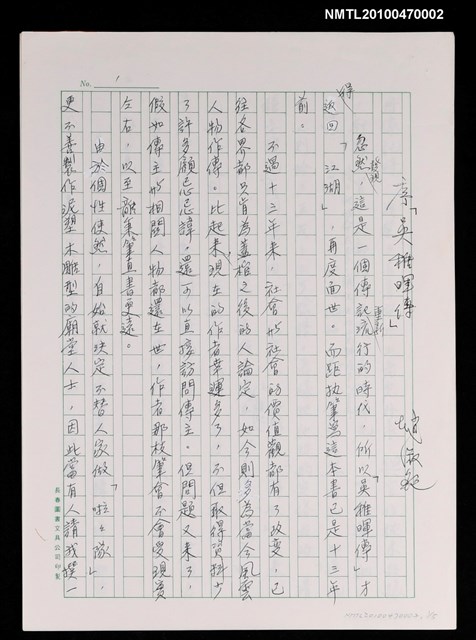 NMTL20100470002
No. 1
序「吳稚暉傳」 趙淑敏
忽然發現,這是一個傳記重新流行的時代,所以「吳稚暉傳」才得
返回「江湖」,再度面世。而距執筆寫這本書已是十三年
前。
不過十三年來,社會與社會的價值觀都有了改變,已
往各界都只肯為蓋棺之後的人論定,如今則多為當今風雲
人物作傳。比起來,現在的作者幸運多了,不但取得資料少
了許多顧忌忌諱,還可以直接訪問傳主。但問題又來了,
假如傳主與相關人物都還在世,作者那枝筆會不會受現實
左右,以至離董筆直書更遠。
由於個性使然,自始就決定不替人家做「啦啦隊」,
更不善製作泥塑木雕型的廟堂人士,因此當有人請我撰一
長春圖書文具公司印製
NMTL20100470002